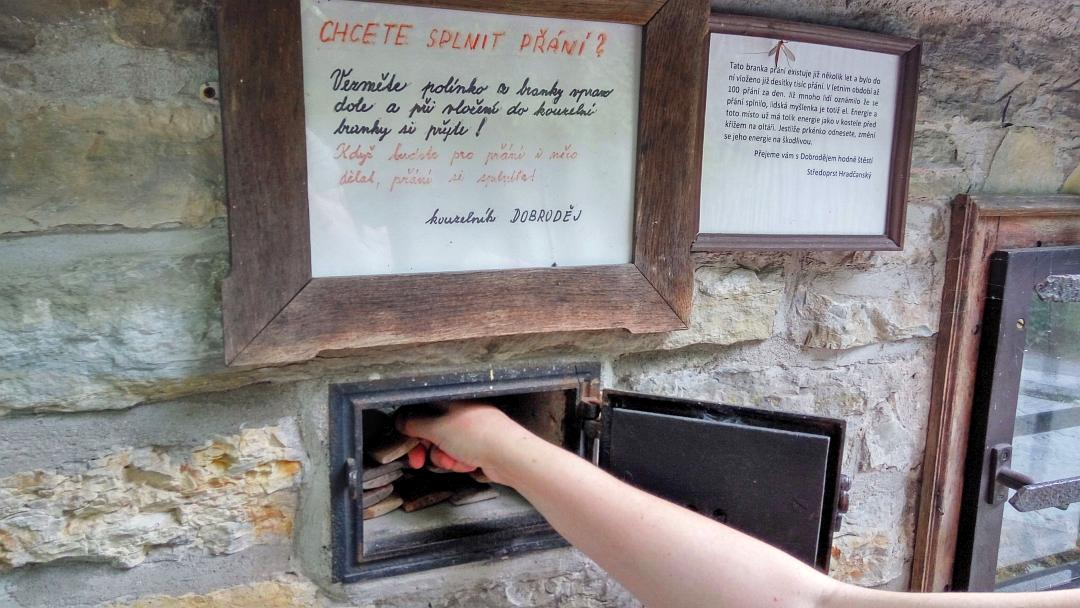 CHCETE SPLNIT PŘÁNÍ?
Vezměte polínko z branky vpravo
dole a při vložení do kouzelné
branky si přejte!
Když budete pro přání i něco
dělat, přání se splníta!
kouzelník DOBRODĚJ
Tato branka přání existuje již několik let a bylo do
ní vloženo již desítky tisíc přání. V letním období až
100 přání za den. Již mnoho lidí oznámilo že se
přání splnilo, lidská myšlenka je totiž el. Energie a
toto místo už má tolik energie jako v kostele před
křížem na oltáři. Jestliže prkénko odnesete, změní
se jeho energie na škodlivou.
Přejeme vám s Dobrodějem hodně štěstí
Středoprst Hradčanský